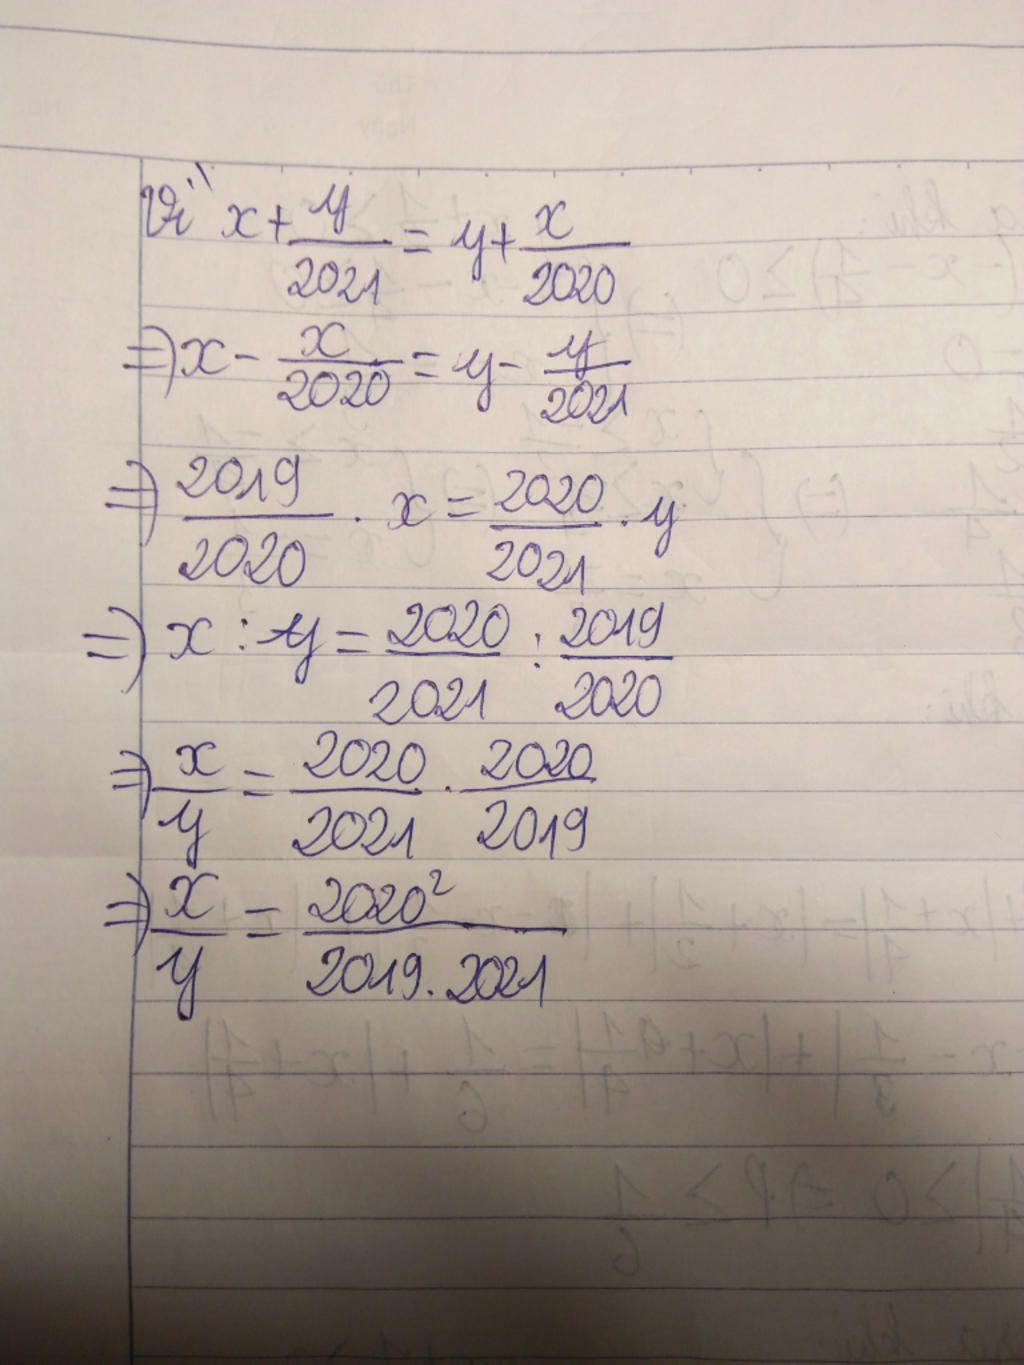 Vì x + y/2021 = y + x/2020
=> x - x/2020 = y - y/2021
=> 2019/2020 . x = 2020/2021 . y
=> x : y = 2020/2021 : 2019/2020
=> x/y = 2020/2021 . 2020/2019
=> x/y = 2020²/2019.2021